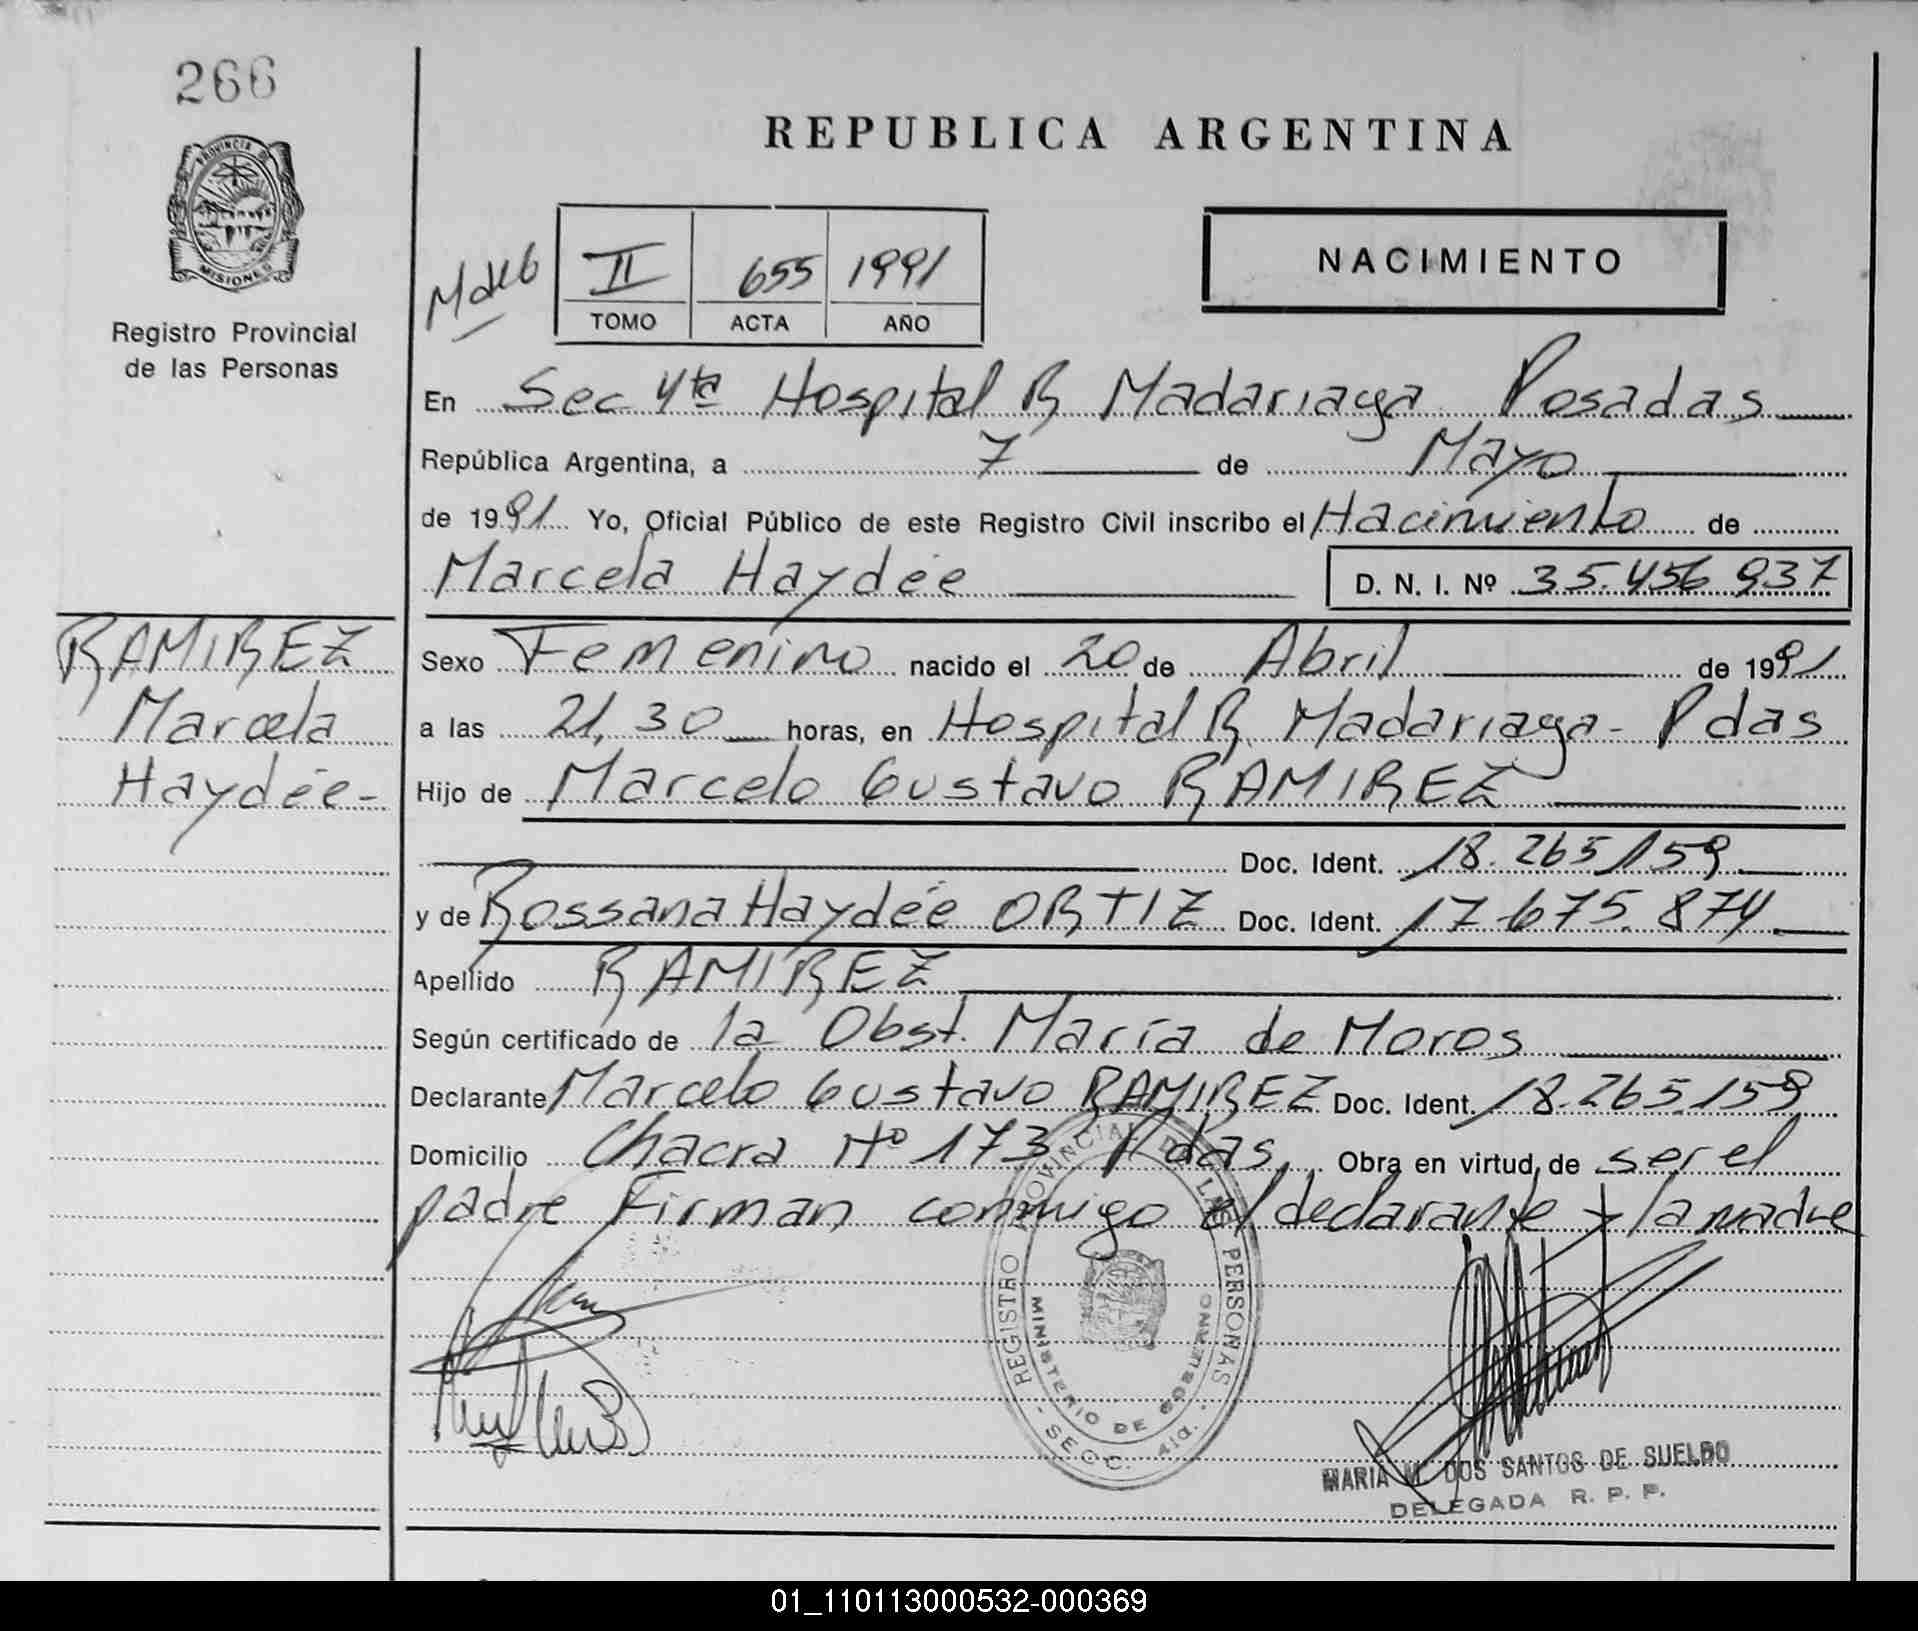 266
PROVINCIA DE
MISIONES
Registro Provincial
de las Personas
RAMIREZ
Marcela
Haydée-
REPUBLICA ARGENTINA
II 655 1991
TOMO ACTA AÑO
NACIMIENTO
En Sec 4ta Hospital R Madariaga Posadas
República Argentina, a 7 de Mayo
de 1991 Yo, Oficial Público de este Registro Civil inscribo el Nacimiento de
Marcela Haydée D. N. I. Nº 35.456.937
Sexo Femenino nacido el 20 de Abril de 1991
a las 21,30 horas, en Hospital R. Madariaga - Pdas
Hijo de Marcelo Gustavo RAMIREZ
Doc. Ident. 18.265.159
y de Rossana Haydée ORTIZ Doc. Ident. 17.675.874
Apellido RAMIREZ
Según certificado de la Obst. María de Moros
Declarante Marcelo Gustavo RAMIREZ Doc. Ident. 18.265.159
Domicilio Chacra Nº 173 Pdas, Obra en virtud de ser el
padre Firman conmigo el declarante y la madre
REGISTRO PROVINCIAL DE LAS PERSONAS
MINISTERIO DE GOBIERNO
- SECC. 4ta. -
MARIA M. DOS SANTOS DE SUELDO
DELEGADA R. P. P.
01_110113000532-000369